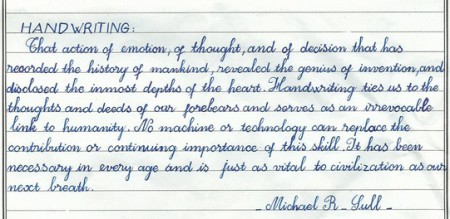 HANDWRITING:
That action of emotion, of thought, and of decision that has
recorded the history of mankind, revealed the genius of invention, and
disclosed the inmost depths of the heart. Handwriting ties us to the
thoughts and deeds of our forebears and serves as an irrevocable
link to humanity. No machine or technology can replace the
contribution or continuing importance of this skill. It has been
necessary in every age and is just as vital to civilization as our
next breath.
- Michael R - Sull -